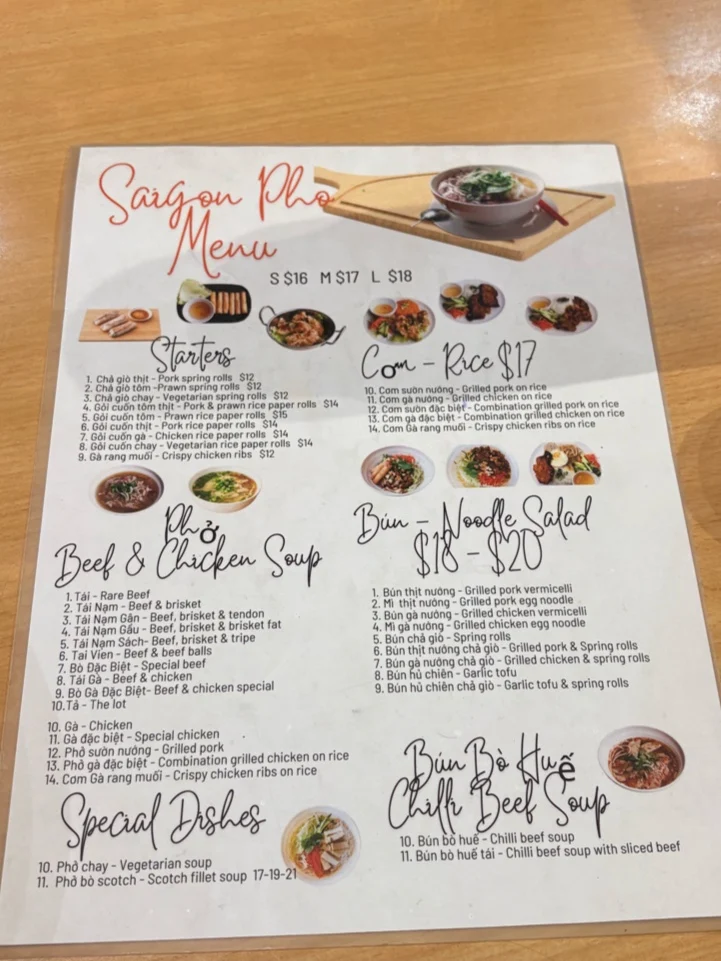 Saigon Pho
Menu
S $16 M $17 L $18
Starters
1. Chả giò thịt - Pork spring rolls $12
2. Chả giò tôm -Prawn spring rolls $12
3. Chả giò chay - Vegetarian spring rolls $12
4. Gỏi cuốn tôm thịt - Pork & prawn rice paper rolls $14
5. Gỏi cuốn tôm - Prawn rice paper rolls $15
6. Gỏi cuốn thịt - Pork rice paper rolls $14
7. Gỏi cuốn gà - Chicken rice paper rolls $14
8. Gỏi cuốn chay - Vegetarian rice paper rolls $14
9. Gà rang muối - Crispy chicken ribs $12
Cơm - Rice $17
10. Cơm sườn nướng - Grilled pork on rice
11. Cơm gà nướng - Grilled chicken on rice
12. Cơm sườn đặc biệt - Combination grilled pork on rice
13. Cơm gà đặc biệt - Combination grilled chicken on rice
14. Cơm Gà rang muối - Crispy chicken ribs on rice
Phở
Beef & Chicken Soup
1. Tái - Rare Beef
2. Tái Nạm - Beef & brisket
3. Tái Nạm Gân - Beef, brisket & tendon
4. Tái Nạm Gầu - Beef, brisket & brisket fat
5. Tái Nạm Sách- Beef, brisket & tripe
6. Tai Vien - Beef & beef balls
7. Bò Đặc Biệt - Special beef
8. Tái Gà - Beef & chicken
9. Bò Gà Đặc Biệt- Beef & chicken special
10.Tả - The lot
10. Gà - Chicken
11. Gà đặc biệt - Special chicken
12. Phở sườn nướng - Grilled pork
13. Phở gà đặc biệt - Combination grilled chicken on rice
14. Cơm Gà rang muối - Crispy chicken ribs on rice
Bún - Noodle Salad
$18 - $20
1. Bún thịt nướng - Grilled pork vermicelli
2. Mì thịt nướng - Grilled pork egg noodle
3. Bún gà nướng - Grilled chicken vermicelli
4. Mì gà nướng - Grilled chicken egg noodle
5. Bún chả giò - Spring rolls
6. Bún thịt nướng chả giò - Grilled pork & Spring rolls
7. Bún gà nướng chả giò - Grilled chicken & spring rolls
8. Bún hủ chiên - Garlic tofu
9. Bún hủ chiên chả giò - Garlic tofu & spring rolls
Special Dishes
10. Phở chay - Vegetarian soup
11. Phở bò scotch - Scotch fillet soup 17-19-21
Bún Bò Huế
Chilli Beef Soup
10. Bún bò huế - Chilli beef soup
11. Bún bò huế tái - Chilli beef soup with sliced beef